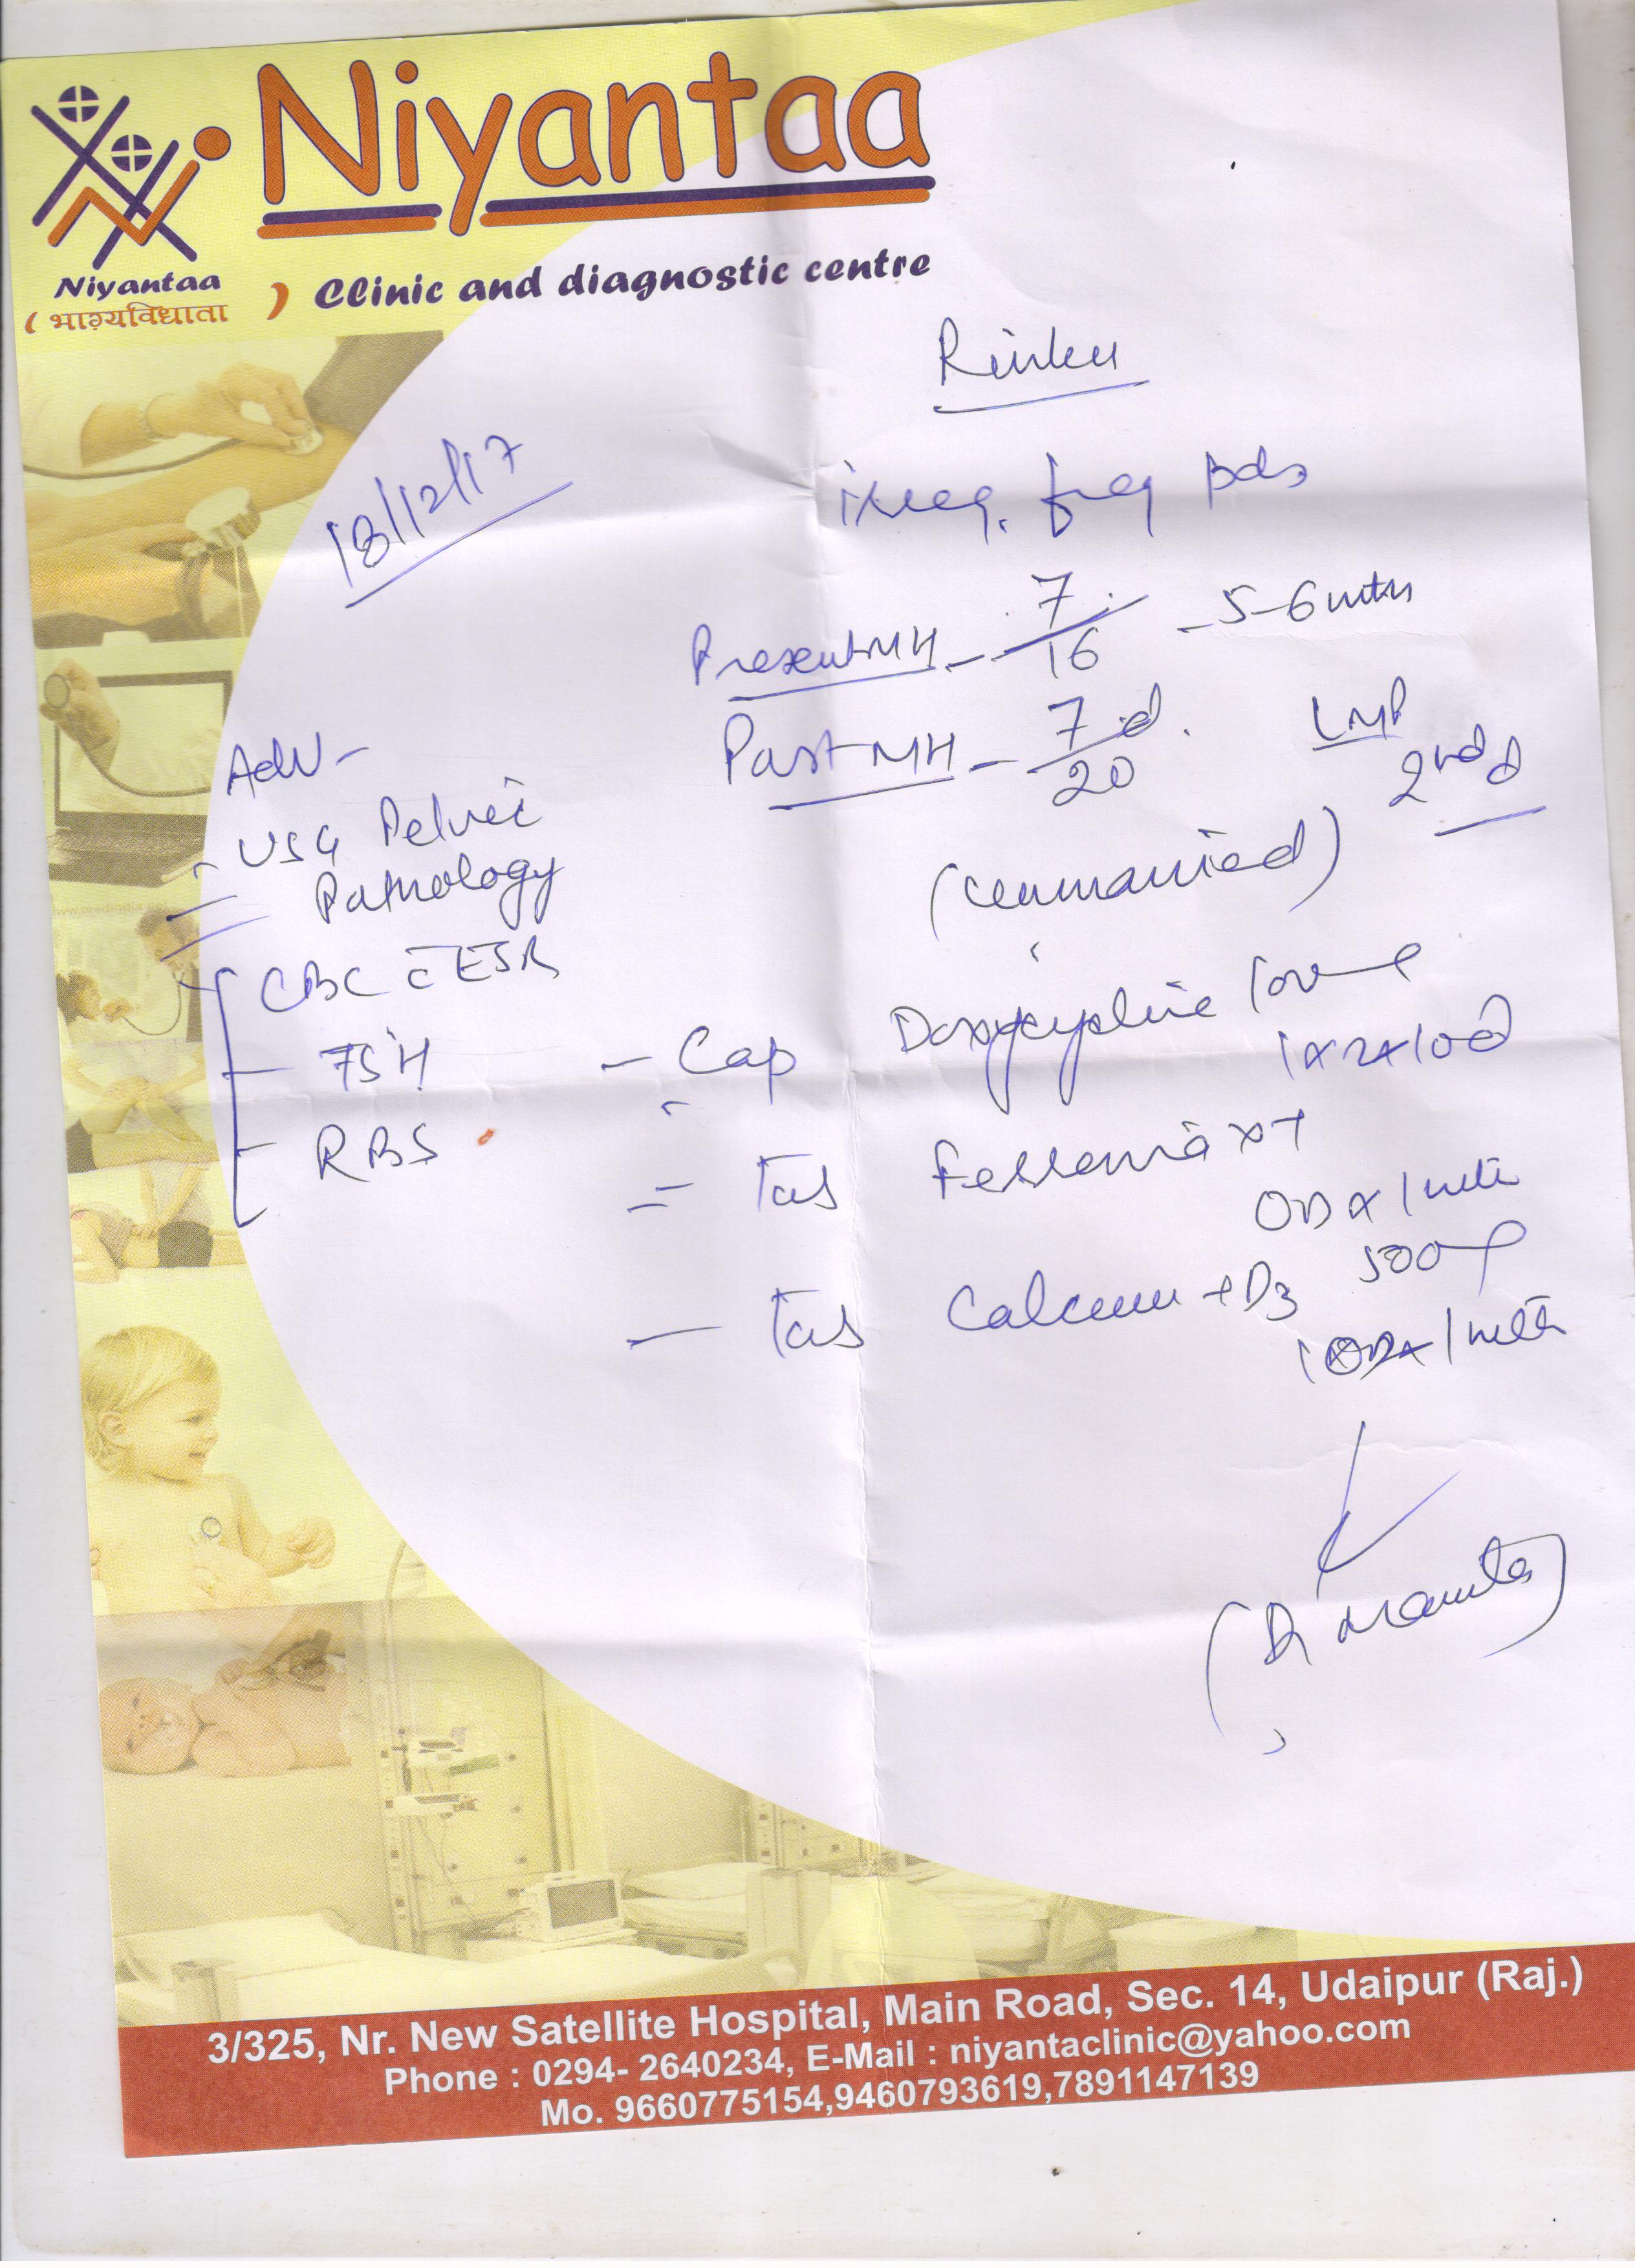 Niyantaa
Niyantaa
(भाग्यविधाता) Clinic and diagnostic centre
Rinku
18/12/17
irreg. freq pds
Present MH - 7/16 - 5-6 mths
Past MH - 7d/20
LMP
2nd d
(unmarried)
Adv -
- USG Pelvic
Pathology
CBC c̄ ESR
- TSH
- RBS
- Cap Doxycycline 100
1x2x10d
- Tab XT
OD x 1 mth
- Tab Calcium + D3 500
1 OD x 1 mth
(Dr Mamta)
www.medindia.net
3/325, Nr. New Satellite Hospital, Main Road, Sec. 14, Udaipur (Raj.)
Phone : 0294- 2640234, E-Mail : niyantaclinic@yahoo.com
Mo. 9660775154,9460793619,7891147139